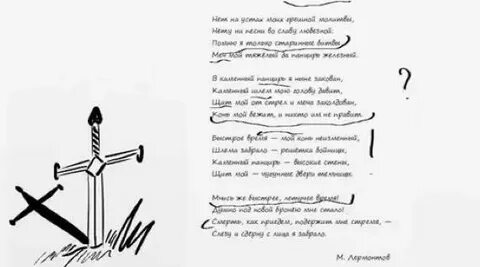 Нет на устах моих грешной молитвы,
Нету ни песни во славу любезной:
Помню я только старинные битвы,
Меч мой тяжёлый да панцирь железный.
В каменный панцирь я ныне закован,
Каменный шлем мою голову давит,
Щит мой от стрел и меча заколдован,
Конь мой бежит, и никто им не правит.
?
Быстрое время — мой конь неизменный,
Шлема забрало — решётка бойницы,
Каменный панцирь — высокие стены,
Щит мой — чугунные двери темницы.
Мчись же быстрее, летучее время!
Душно под новой бронёю мне стало!
Смерть, как приедем, подержит мне стремя, —
Слезу и сдёрну с лица я забрало.
М. Лермонтов